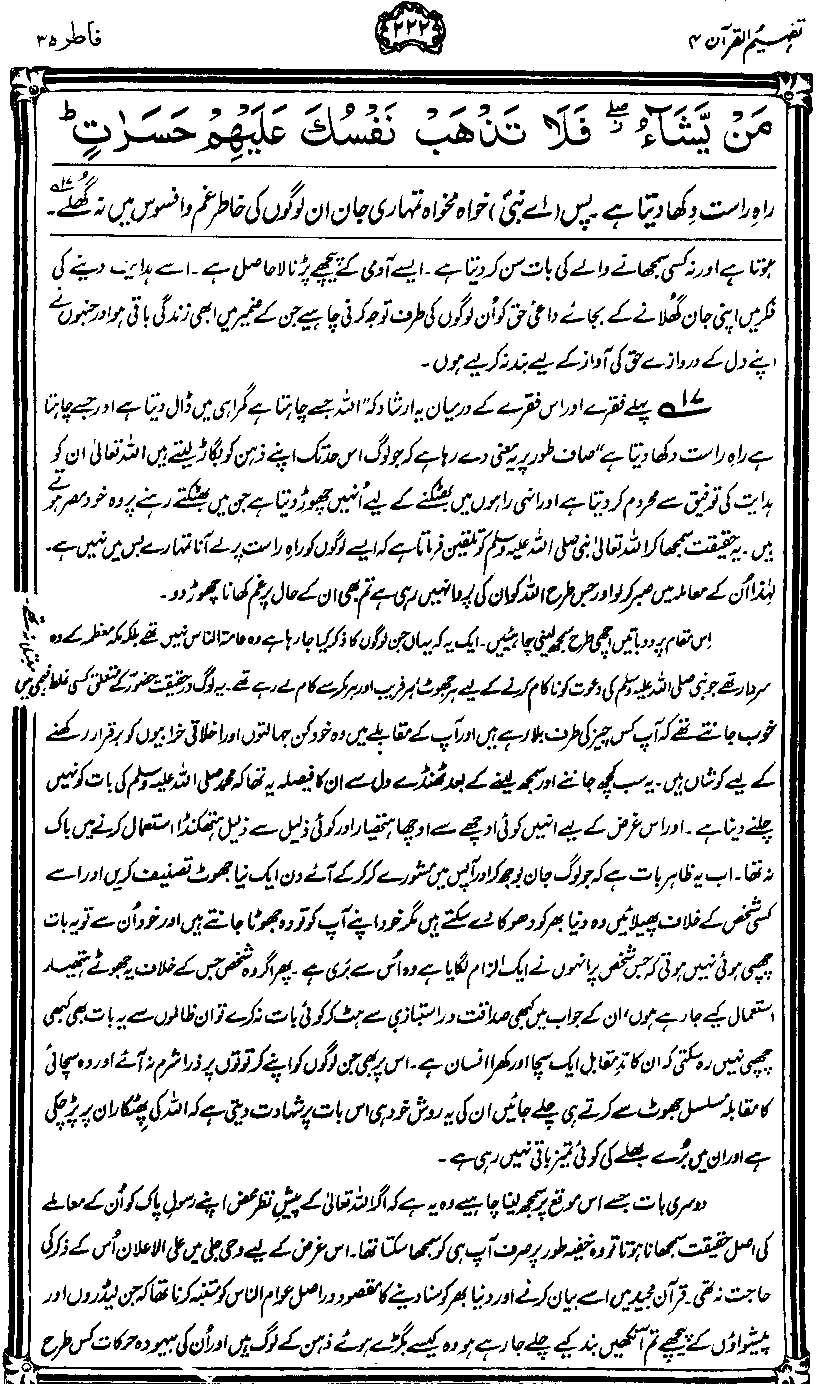 تفہیم القرآن ۴
۲۲۲
فاطر ۳۵
مَنْ يَّشَآءُ ۖ فَلَا تَذْهَبْ نَفْسُكَ عَلَيْهِمْ حَسَرٰتٍ ؕ
راہِ راست دکھا دیتا ہے۔ پس (اے نبیؐ) خواہ مخواہ تمہاری جان ان لوگوں کی خاطر غم و افسوس میں نہ گھُلے۱۷۔
ہوتا ہے اور نہ کسی سمجھانے والے کی بات سن کر دیتا ہے۔ ایسے آدمی کے پیچھے پڑنا لاحاصل ہے۔ اسے ہدایت دینے کی
فکر میں اپنی جان گھُلانے کے بجائے داعیِ حق کو اُن لوگوں کی طرف توجہ کرنی چاہیے جن کے ضمیر میں ابھی زندگی باقی ہو اور جنہوں نے
اپنے دل کے دروازے حق کی آواز کے لیے بند نہ کر لیے ہوں۔
۱۷ پہلے فقرے اور اس فقرے کے درمیان یہ ارشاد کہ "اللہ جسے چاہتا ہے گمراہی میں ڈال دیتا ہے اور جسے چاہتا
ہے راہِ راست دکھا دیتا ہے" صاف طور پر یہ معنی دے رہا ہے کہ جو لوگ اس حد تک اپنے ذہن کو بگاڑ لیتے ہیں اللہ تعالیٰ ان کو
ہدایت کی توفیق سے محروم کر دیتا ہے اور انہی راہوں میں بھٹکنے کے لیے اُنہیں چھوڑ دیتا ہے جن میں بھٹکتے رہنے پر وہ خود مصر ہوتے
ہیں۔ یہ حقیقت سمجھا کر اللہ تعالیٰ نبی صلی اللہ علیہ وسلم کو تلقین فرماتا ہے کہ ایسے لوگوں کو راہِ راست پر لے آنا تمہارے بس میں نہیں ہے۔
لہٰذا اُن کے معاملہ میں صبر کر لو اور جس طرح اللہ کو ان کی پروا نہیں رہی ہے تم بھی ان کے حال پر غم کھانا چھوڑ دو۔
اِس مقام پر دو باتیں اچھی طرح سمجھ لینی چاہئیں۔ ایک یہ کہ یہاں جن لوگوں کا ذکر کیا جا رہا ہے وہ عامۃ الناس نہیں تھے بلکہ مکہ معظمہ کے وہ
سردار تھے جو نبی صلی اللہ علیہ وسلم کی دعوت کو ناکام کرنے کے لیے ہر جھوٹ، ہر فریب اور ہر مکر سے کام لے رہے تھے۔ یہ لوگ درحقیقت حضورؐ کے متعلق کسی غلط فہمی میں
مبتلا نہ تھے۔
خوب جانتے تھے کہ آپ کس چیز کی طرف بلا رہے ہیں اور آپ کے مقابلے میں وہ خود کن جہالتوں اور اخلاقی خرابیوں کو برقرار رکھنے
کے لیے کوشاں ہیں۔ یہ سب کچھ جاننے اور سمجھ لینے کے بعد ٹھنڈے دل سے ان کا فیصلہ یہ تھا کہ محمد صلی اللہ علیہ وسلم کی بات کو نہیں
چلنے دینا ہے۔ اور اس غرض کے لیے انہیں کوئی اوچھے سے اوچھا ہتھیار اور کوئی ذلیل سے ذلیل ہتھکنڈا استعمال کرنے میں باک
نہ تھا۔ اب یہ ظاہر بات ہے کہ جو لوگ جان بوجھ کر اور آپس میں مشورے کر کر کے آئے دن ایک نیا جھوٹ تصنیف کریں اور اسے
کسی شخص کے خلاف پھیلائیں وہ دنیا بھر کو دھوکا دے سکتے ہیں مگر خود اپنے آپ کو تو وہ جھوٹا جانتے ہیں اور خود اُن سے تو یہ بات
چھپی ہوئی نہیں ہوتی کہ جس شخص پر انہوں نے ایک الزام لگایا ہے وہ اُس سے بَری ہے۔ پھر اگر وہ شخص جس کے خلاف یہ جھوٹے ہتھیار
استعمال کیے جا رہے ہوں، ان کے جواب میں کبھی صداقت و راستبازی سے ہٹ کر کوئی بات نہ کرے تو ان ظالموں سے یہ بات بھی کبھی
چھپی نہیں رہ سکتی کہ ان کا مدِّ مقابل ایک سچا اور کھرا انسان ہے۔ اس پر بھی جن لوگوں کو اپنے کرتوتوں پر ذرا شرم نہ آئے اور وہ سچائی
کا مقابلہ مسلسل جھوٹ سے کرتے ہی چلے جائیں ان کی یہ روش خود ہی اس بات پر شہادت دیتی ہے کہ اللہ کی پھٹکار ان پر پڑ چکی
ہے اور ان میں بُرے بھلے کی کوئی تمیز باقی نہیں رہی ہے۔
دوسری بات جسے اس موقع پر سمجھ لینا چاہیے وہ یہ ہے کہ اگر اللہ تعالیٰ کے پیشِ نظر محض اپنے رسولِ پاک کو اُن کے معاملے
کی اصل حقیقت سمجھانا ہوتا تو وہ خفیہ طور پر صرف آپ ہی کو سمجھا سکتا تھا۔ اس غرض کے لیے وحیِ جلی میں علی الاعلان اُس کے ذکر کی
حاجت نہ تھی۔ قرآن مجید میں اسے بیان کرنے اور دنیا بھر کو سنا دینے کا مقصود دراصل عوام الناس کو متنبہ کرنا تھا کہ جن لیڈروں اور
پیشواؤں کے پیچھے تم آنکھیں بند کیے چلے جا رہے ہو وہ کیسے بگڑے ہوئے ذہن کے لوگ ہیں اور اُن کی بیہودہ حرکات کس طرح